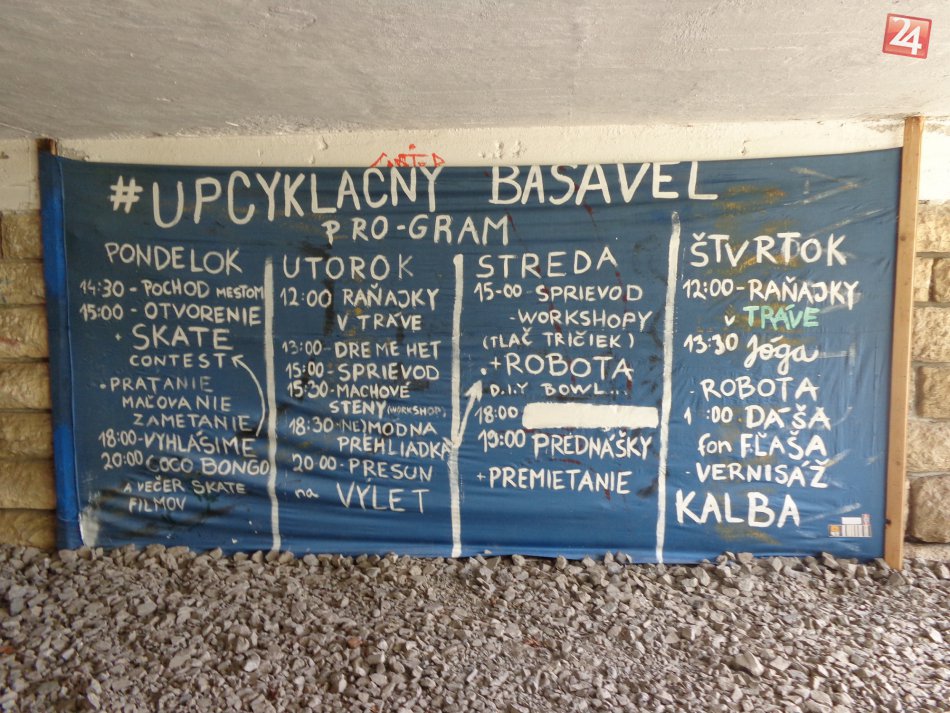 24
#UPCYKLAČNÝ BASAVEL
PRO-GRAM
PONDELOK
14:30 - POCHOD MESTOM
15:00 - OTVORENIE
+ SKATE
CONTEST
• PRATANIE
MAĽOVANIE
ZAMETANIE
18:00 - VYHLÁSIME
20:00 COCO BONGO
A VEČER SKATE
FILMOV
UTOROK
12:00 RAŇAJKY
V TRÁVE
13:00 - DREME HET
15:00 - SPRIEVOD
15:30 - MACHOVÉ
STENY (WORKSHOP)
18:30 - (NE)MODNA
PREHLIADKA
20:00 - PRESUN
na VÝLET
STREDA
15-00 - SPRIEVOD
- WORKSHOPY
(TLAČ TRIČIEK)
• + ROBOTA
D.I.Y BOWL...
18:00
19:00 PREDNÁŠKY
+ PREMIETANIE
ŠTVRTOK
12:00 - RAŇAJKY
V TRÁVE
13:30 Jóga
- ROBOTA
:00 - DÁŠA
fon FĽAŠA
- VERNISÁŽ
KALBA